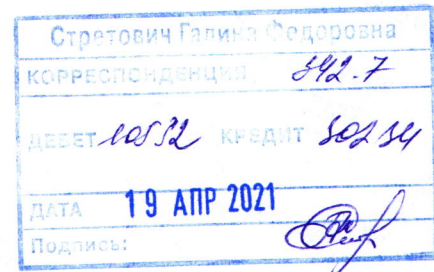 Стретович Галина Федоровна
КОРРЕСПОНДЕНЦИЯ 342.7
ДЕБЕТ 10552 КРЕДИТ 30234
ДАТА 19 АПР 2021
Подпись: